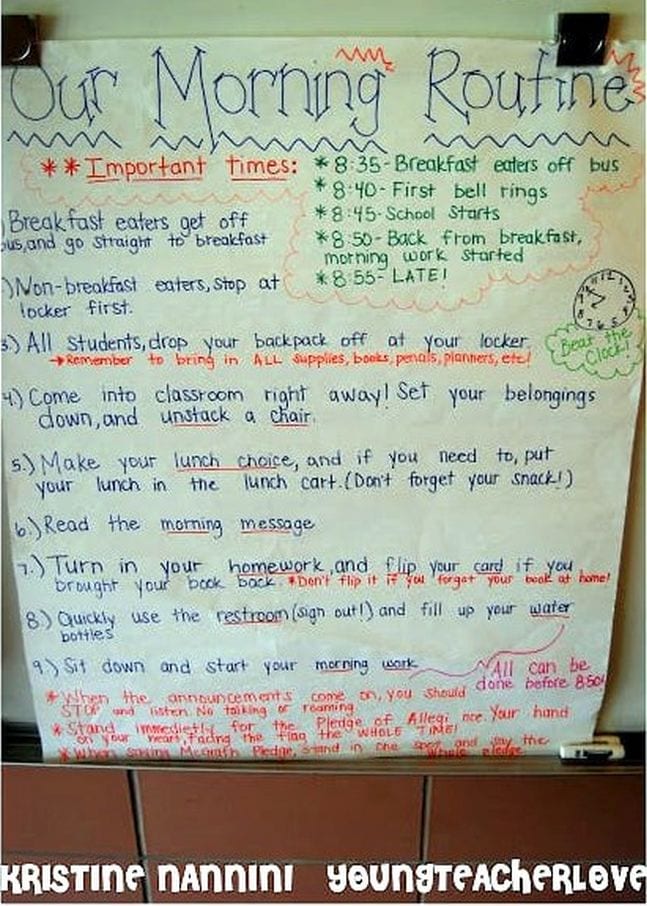 Our Morning Routine
** Important times:
* 8:35- Breakfast eaters off bus
* 8:40- First bell rings
* 8:45- School Starts
* 8:50- Back from breakfast,
morning work started
* 8:55- LATE!
) Breakfast eaters get off
bus, and go straight to breakfast
) Non-breakfast eaters, stop at
locker first.
3.) All students, drop your backpack off at your locker.
→Remember to bring in ALL supplies, books, pencils, planners, etc!
Beat the
Clock!
4.) Come into classroom right away! Set your belongings
down, and unstack a chair.
5.) Make your lunch choice, and if you need to, put
your lunch in the lunch cart. (Don't forget your snack!)
6.) Read the morning message
7.) Turn in your homework, and flip your card if you
brought your book back. *Don't flip it if you forgot your book at home!
8.) Quickly use the restroom (sign out!) and fill up your water
bottles
9.) Sit down and start your morning work
All can be
done before 8:50!
* When the announcements come on, you should
STOP and listen. No talking or roaming.
* Stand immedietly for the Pledge of Allegi nce. Your hand
on your heart, facing the flag the "WHOLE TIME!
* When saying McGrath Pledge, stand in one spot and say the
whole pledge
KRISTINE NANNINI YOUNGTEACHERLOVE